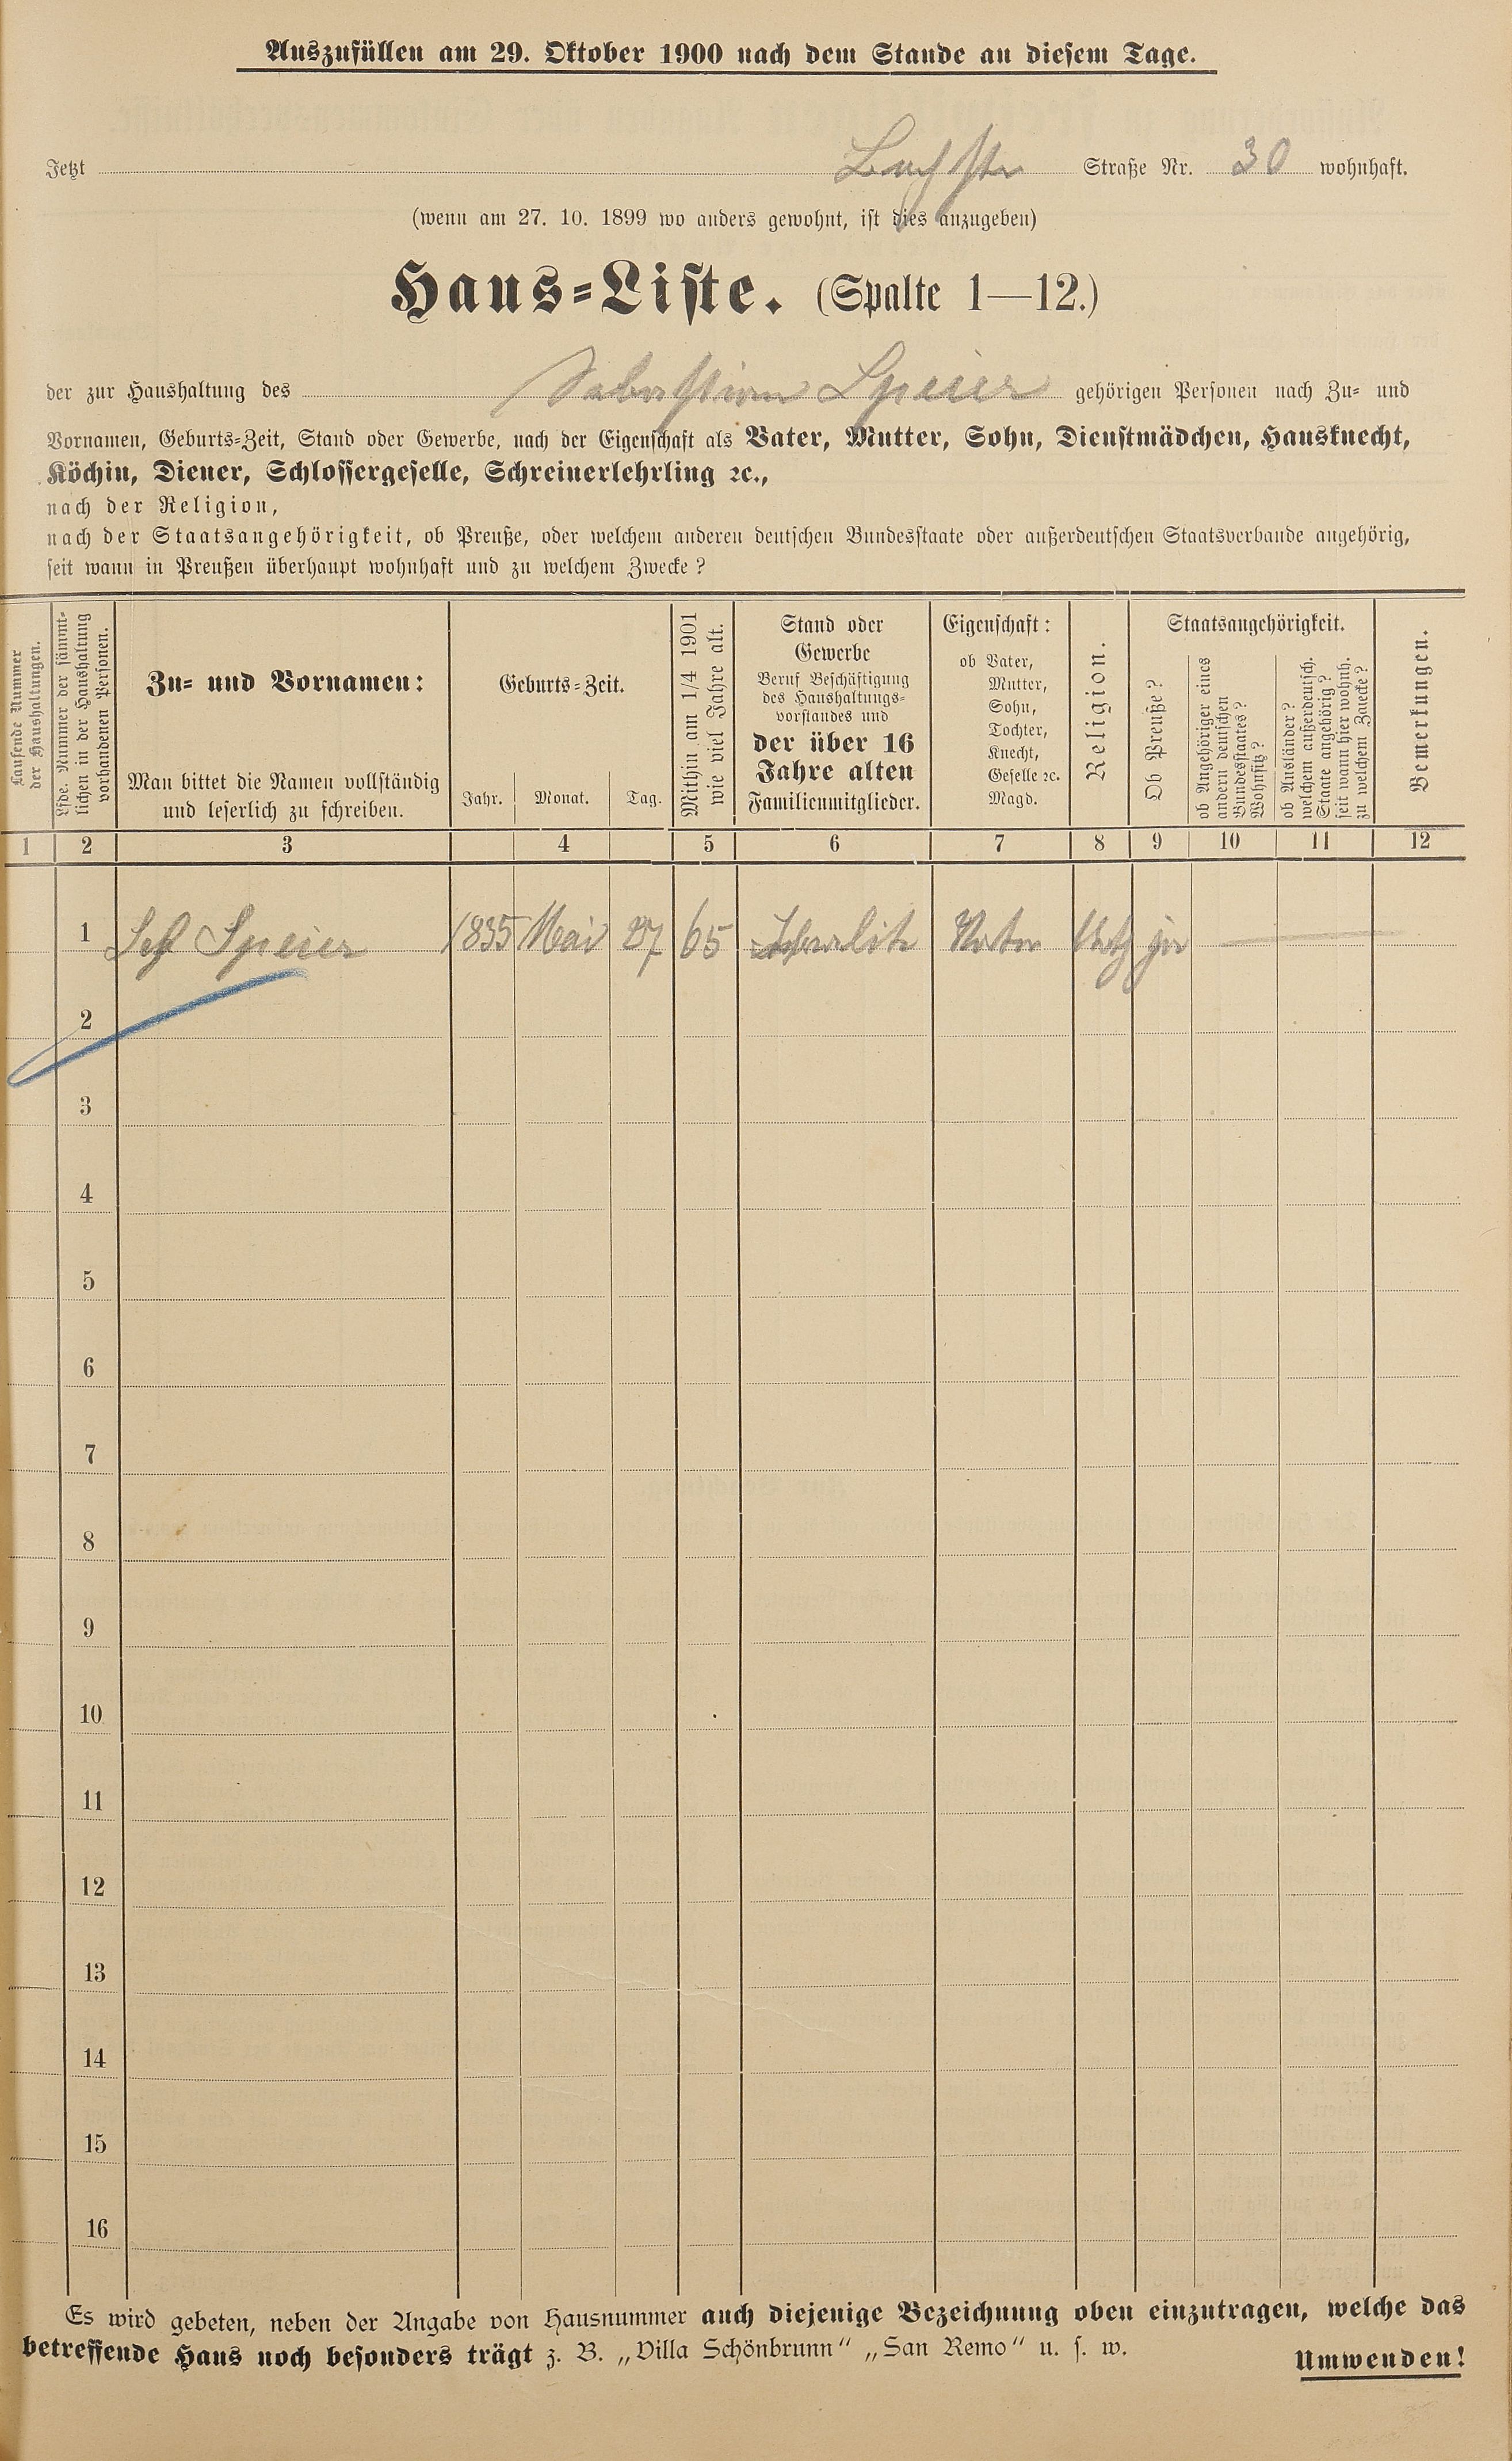 Auszufüllen am 29. Oktober 1900 nach dem Stande an diesem Tage.
Jetzt Straße Nr. 30 wohnhaft.
(wenn am 27. 10. 1899 wo anders gewohnt, ist dies anzugeben)
Haus=Liste. (Spalte 1—12.)
der zur Haushaltung des Sebastian Speier gehörigen Personen nach Zu= und
Vornamen, Geburts=Zeit, Stand oder Gewerbe, nach der Eigenschaft als Vater, Mutter, Sohn, Dienstmädchen, Hausknecht,
Köchin, Diener, Schlossergeselle, Schreinerlehrling ꝛc.,
nach der Religion,
nach der Staatsangehörigkeit, ob Preuße, oder welchem anderen deutschen Bundesstaate oder außerdeutschen Staatsverbande angehörig,
seit wann in Preußen überhaupt wohnhaft und zu welchem Zwecke?
Laufende Nummer
der Haushaltungen.
Lfde. Nummer der sämmt=
lichen in der Haushaltung
vorhandenen Personen.
Zu= und Vornamen:
Man bittet die Namen vollständig
und leserlich zu schreiben.
Geburts=Zeit.
Jahr. Monat. Tag.
Mithin am 1/4 1901
wie viel Jahre alt.
Stand oder
Gewerbe
Beruf Beschäftigung
des Haushaltungs=
vorstandes und
der über 16
Jahre alten
Familienmitglieder.
Eigenschaft:
ob Vater,
Mutter,
Sohn,
Tochter,
Knecht,
Geselle ꝛc.
Magd.
Religion.
Staatsangehörigkeit.
Ob Preuße?
ob Angehöriger eines
andern deutschen
Bundesstaates?
Wohnsitz?
ob Ausländer?
welchem außerdeutsch.
Staate angehörig?
seit wann hier wohnh.
zu welchem Zwecke?
Bemerkungen.
1 2 3 4 5 6 7 8 9 10 11 12
1 Seb Speier 1835 Mai 27 65 Vater ja
2
3
4
5
6
7
8
9
10
11
12
13
14
15
16
Es wird gebeten, neben der Angabe von Hausnummer auch diejenige Bezeichnung oben einzutragen, welche das
betreffende Haus noch besonders trägt z. B. „Villa Schönbrunn" „San Remo" u. s. w.
Umwenden!